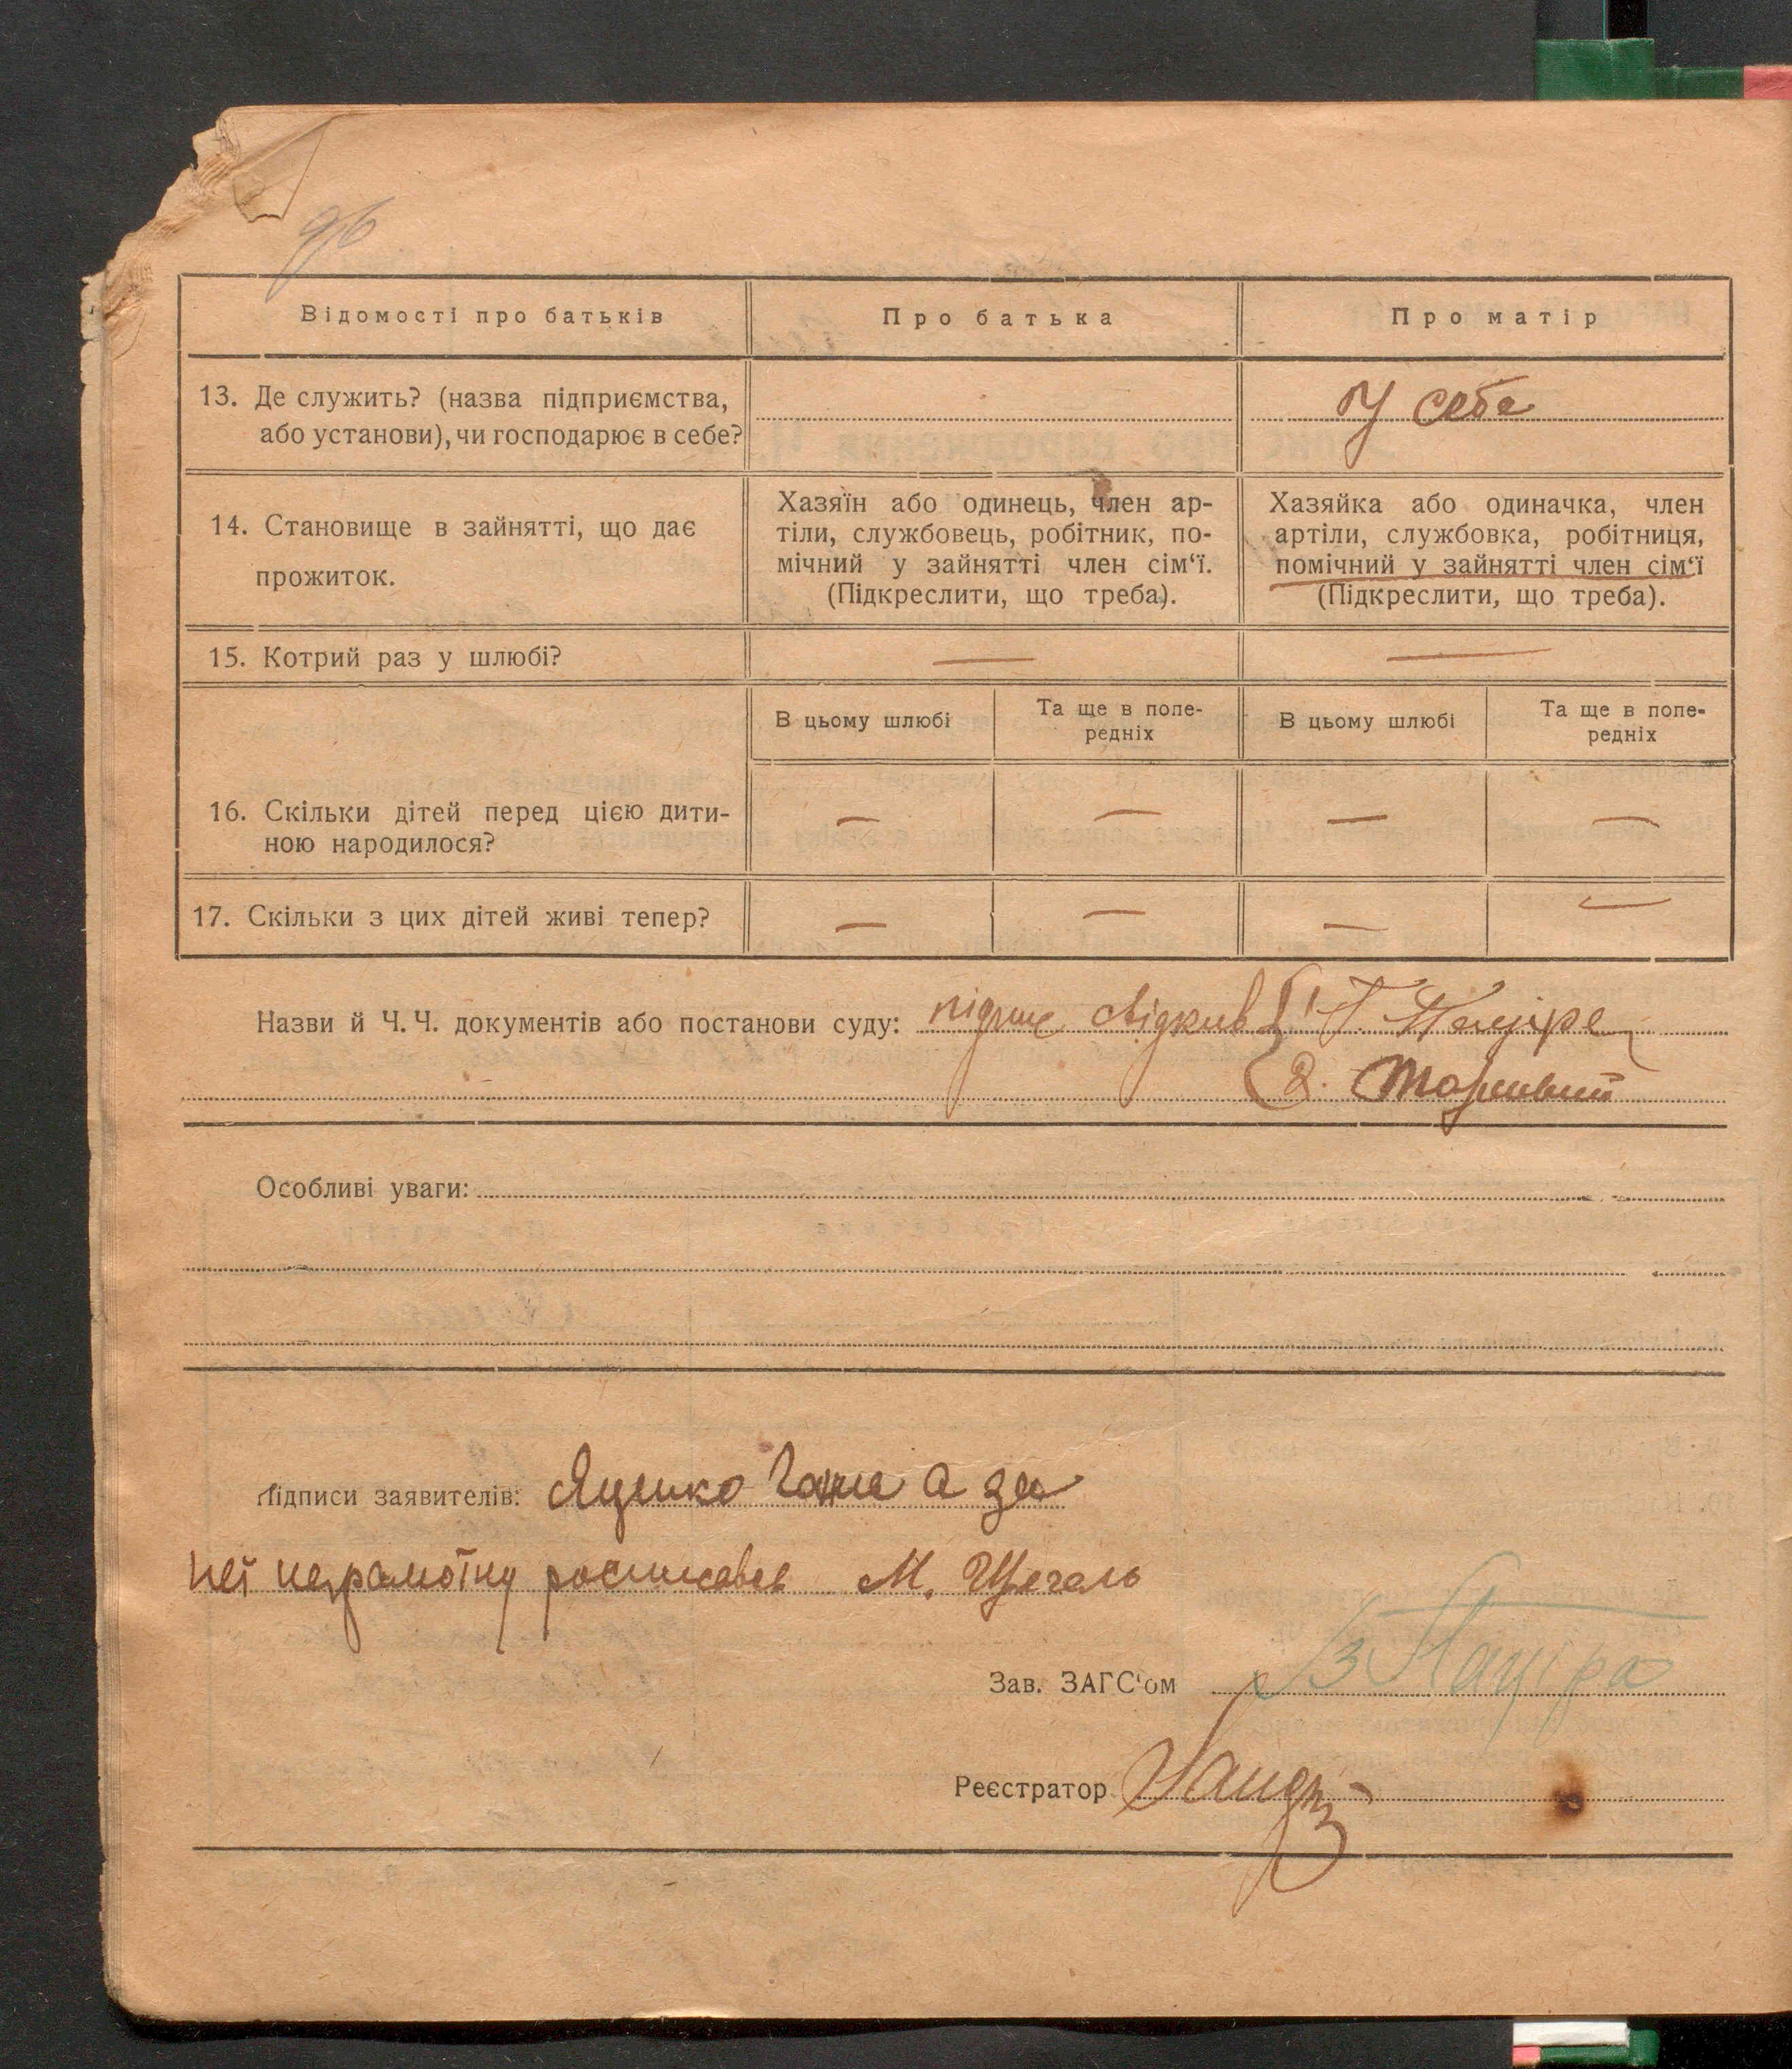 96
Відомості про батьків
Про батька
Про матір
13. Де служить? (назва підприємства,
або установи), чи господарює в себе?
У себе
14. Становище в зайнятті, що дає
прожиток.
Хазяїн або одинець, член ар-
тіли, службовець, робітник, по-
мічний у зайнятті член сім‘ї.
(Підкреслити, що треба).
Хазяйка або одиначка, член
артіли, службовка, робітниця,
помічний у зайнятті член сім‘ї
(Підкреслити, що треба).
15. Котрий раз у шлюбі?
—
—
В цьому шлюбі
Та ще в попе-
редніх
В цьому шлюбі
Та ще в попе-
редніх
16. Скільки дітей перед цією дити-
ною народилося?
— — — —
17. Скільки з цих дітей живі тепер?
— — — —
Назви й Ч. Ч. документів або постанови суду:
2.
Особливі уваги:
Підписи заявителів: Яценко Ганна а за
неї неграмотну росписався М. Щеголь
Зав. ЗАГС‘ом Пащра
Реєстратор